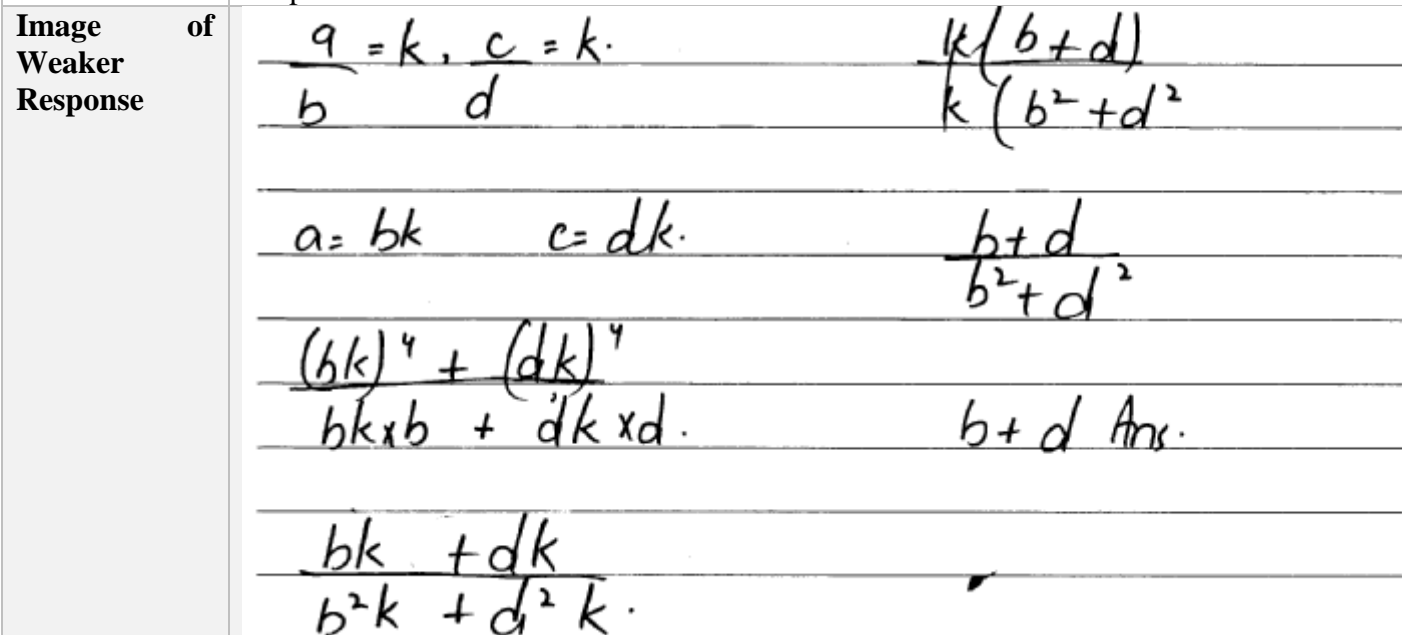 Image of
Weaker
Response
a/b = k, c/d = k.
a = bk c = dk.
(bk)⁴ + (dk)⁴ / bk×b + dk×d.
bk + dk / b²k + d²k.
k(b+d) / k(b²+d²
b+d / b²+d²
b+d Ans.